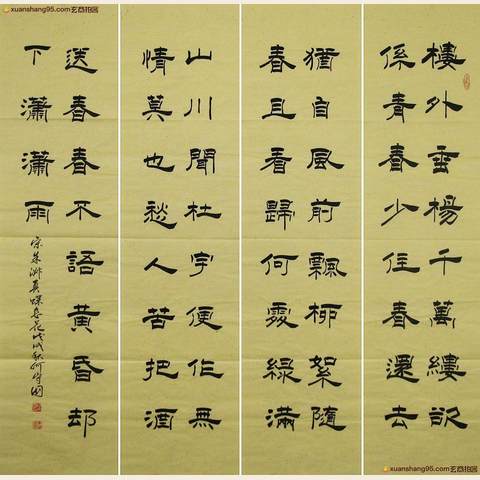 xuanshang95.com
樓外垂楊千萬縷欲
係青春少住春還去
猶自風前飄柳絮隨
春且看歸何處綠滿
山川聞杜宇便作無
情莫也愁人苦把酒
送春春不語黄昏却
下瀟瀟雨
宋朱淑真蝶恋花戊戌秋何
xuanshang95.com